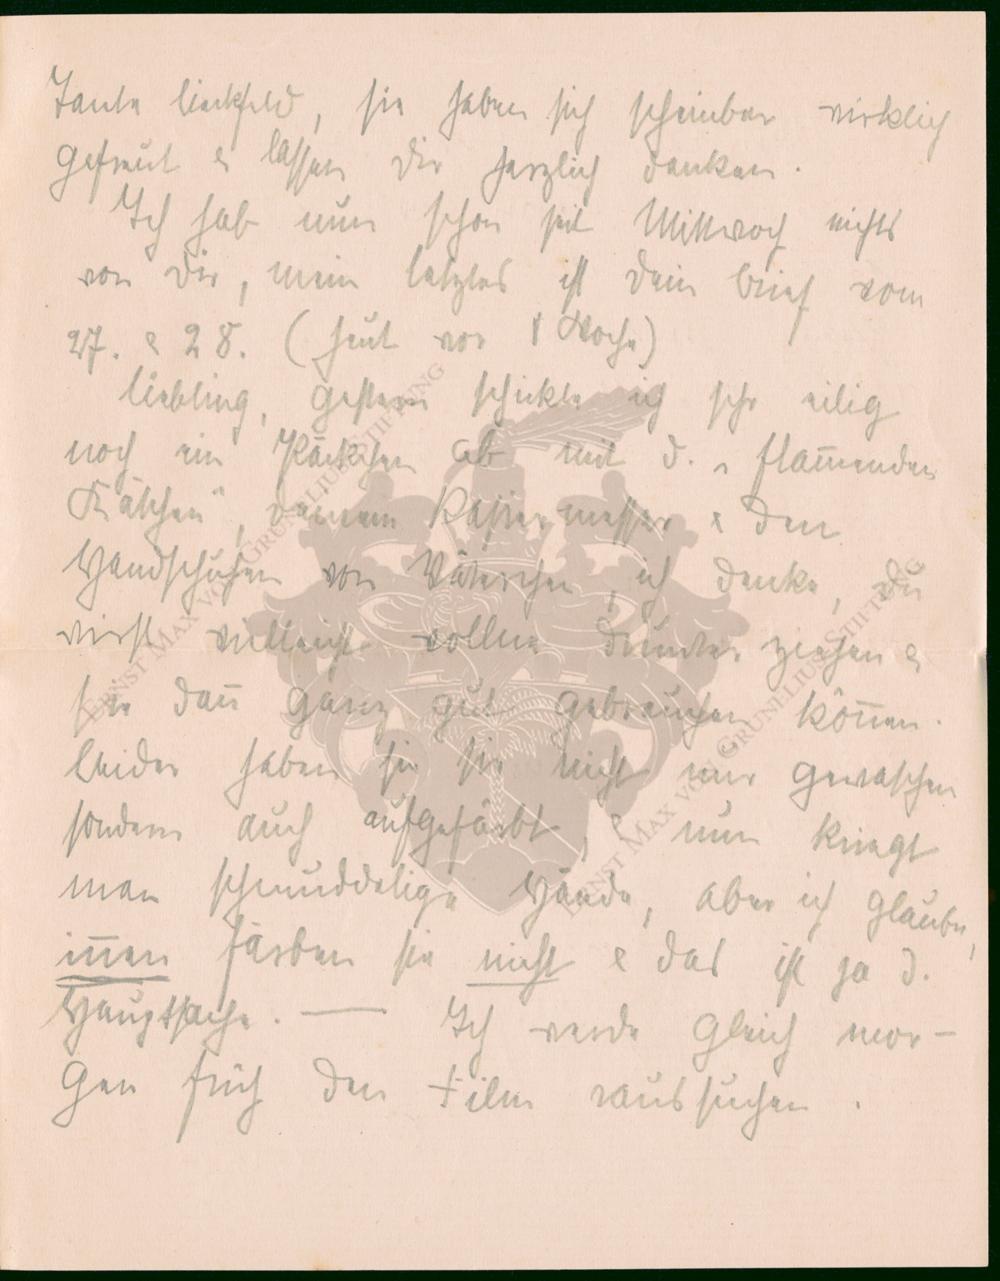 Tante Lieckfeld, sie haben sich scheinbar wirklich
gefreut & lassen Dir herzlich danken.
Ich hab nun schon seit Mittwoch nichts
von Dir, mein letztes ist Dein Brief vom
27. & 28. (heut vor 1 Woche)
Liebling, gestern schickte ich sehr eilig
noch ein Päckchen ab mit d. „flam̄enden
Kätchen", Deinem Rasiermesser & den
Handschuhen von Väterchen, ich denke, Du
wirst vielleicht wollne drunter ziehen &
sie dan̄ ganz gut gebrauchen kön̄en.
Leider haben sie sie nicht nur gewaschen
sondern auch aufgefärbt & nun kriegt
man schmuddelige Hände, aber ich glaube,
in̄en färben sie nicht & das ist ja d.
Hauptsache. — Ich werde gleich mor-
gen früh den Film raussuchen.
ERNST MAX VON GRUNELIUS STIFTUNG
ERNST MAX VON GRUNELIUS STIFTUNG